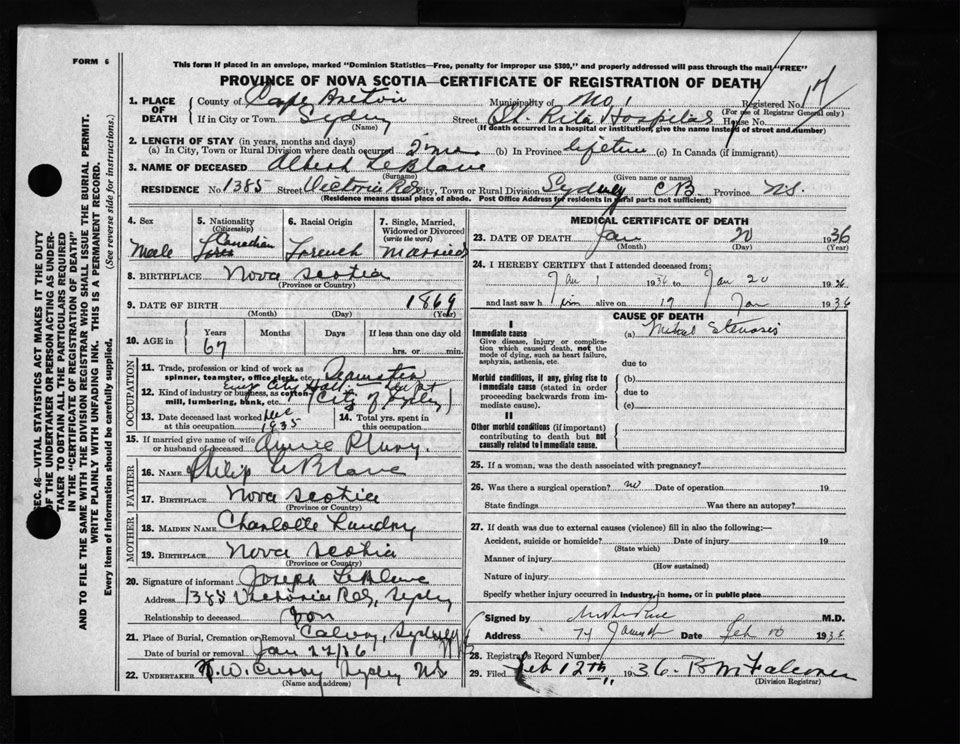 FORM 6
This form if placed in an envelope, marked "Dominion Statistics—Free, penalty for improper use $300," and properly addressed will pass through the mail "FREE"
PROVINCE OF NOVA SCOTIA—CERTIFICATE OF REGISTRATION OF DEATH
1. PLACE OF DEATH
County of Cape Breton Municipality of No. 1 Registered No. 17
(For use of Registrar General only)
If in City or Town Sydney Street St. Rita Hospital House No.
(Name) (If death occurred in a hospital or institution, give the name instead of street and number)
2. LENGTH OF STAY (in years, months and days)
(a) In City, Town or Rural Division where death occurred (b) In Province lifetime (c) In Canada (if immigrant)
3. NAME OF DECEASED Albert LeBlanc
(Surname) (Given name or names)
RESIDENCE No. 1385 Street Victoria Rd City, Town or Rural Division Sydney CB Province NS.
(Residence means usual place of abode. Post Office Address for residents in rural parts not sufficient)
4. Sex
5. Nationality (Citizenship)
6. Racial Origin
7. Single, Married, Widowed or Divorced (write the word)
Male Canadian French Married
8. BIRTHPLACE Nova Scotia
(Province or Country)
9. DATE OF BIRTH 1869
(Month) (Day) (Year)
10. AGE in Years Months Days If less than one day old
67 hrs. or min.
OCCUPATION
11. Trade, profession or kind of work as spinner, teamster, office clerk, etc. Teamster
12. Kind of industry or business, as cotton-mill, lumbering, bank, etc. (City of Sydney)
13. Date deceased last worked at this occupation Dec 1935
14. Total yrs. spent in this occupation
15. If married give name of wife or husband of deceased
FATHER
16. NAME Philip LeBlanc
17. BIRTHPLACE Nova Scotia
(Province or Country)
MOTHER
18. MAIDEN NAME Charlotte Landry
19. BIRTHPLACE Nova Scotia
(Province or Country)
20. Signature of informant Joseph LeBlanc
Address 1385 Victoria Rd, Sydney
Relationship to deceased Son
21. Place of Burial, Cremation or Removal Calvary, Sydney
Date of burial or removal Jan 22/36
22. UNDERTAKER W. Curry Sydney NS
(Name and address)
MEDICAL CERTIFICATE OF DEATH
23. DATE OF DEATH Jan 20 1936
(Month) (Day) (Year)
24. I HEREBY CERTIFY that I attended deceased from:
Jan 1 1936 to Jan 20 1936
and last saw him alive on 19 Jan 1936
CAUSE OF DEATH
I
Immediate cause
Give disease, injury or complication which caused death, not the mode of dying, such as heart failure, asphyxia, asthenia, etc.
(a) Mitral Stenosis
due to
Morbid conditions, if any, giving rise to immediate cause (stated in order proceeding backwards from immediate cause).
(b)
due to
(c)
II
Other morbid conditions (if important) contributing to death but not causally related to immediate cause.
25. If a woman, was the death associated with pregnancy?
26. Was there a surgical operation? no Date of operation 19
State findings Was there an autopsy?
27. If death was due to external causes (violence) fill in also the following:—
Accident, suicide or homicide? Date of injury 19
(State which)
Manner of injury
(How sustained)
Nature of injury
Specify whether injury occurred in industry, in home, or in public place
Signed by M.D.
Address 74 Date Feb 10 1936
28. Registrar's Record Number
29. Filed Feb 12th 1936. B M Falconer
(Division Registrar)
SEC. 46—VITAL STATISTICS ACT MAKES IT THE DUTY
OF THE UNDERTAKER OR PERSON ACTING AS UNDER-
TAKER TO OBTAIN ALL THE PARTICULARS REQUIRED
IN THE "CERTIFICATE OF REGISTRATION OF DEATH"
AND TO FILE THE SAME WITH THE DIVISION REGISTRAR WHO SHALL ISSUE THE BURIAL PERMIT.
WRITE PLAINLY WITH UNFADING INK. THIS IS A PERMANENT RECORD.
Every item of Information should be carefully supplied. (See reverse side for instructions.)